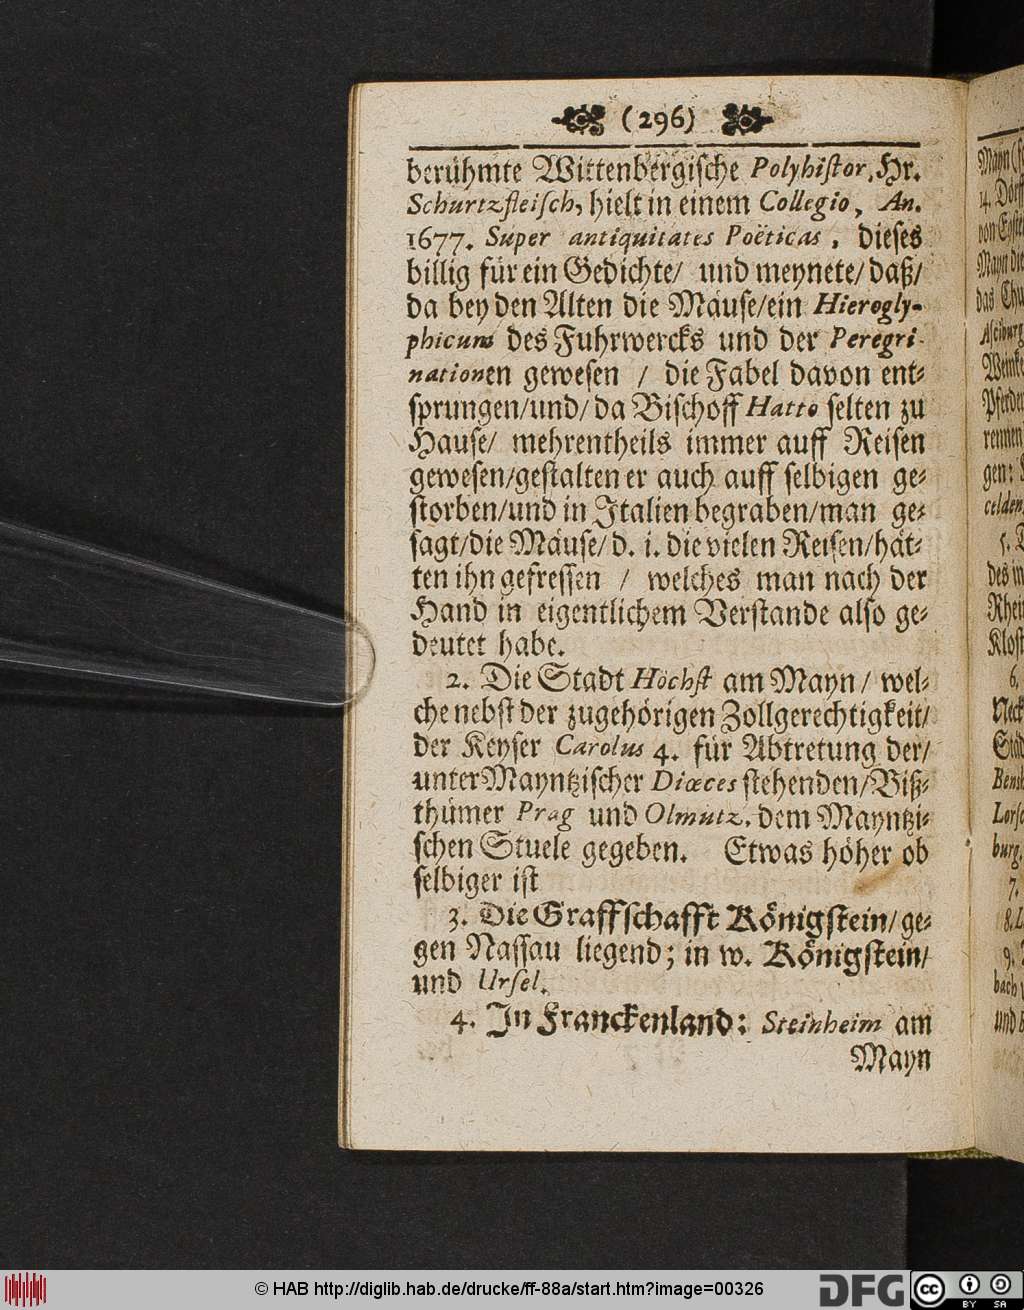 (296)
berühmte Wittenbergische Polyhistor, Hr.
Schurtzfleisch, hielt in einem Collegio, An.
1677. Super antiquitates Poëticas, dieses
billig für ein Gedichte/ und meynete/ daß/
da bey den Alten die Mäuse/ ein Hierogly-
phicum des Fuhrwercks und der Peregri-
nationen gewesen / die Fabel davon ent-
sprungen/ und/ da Bischoff Hatto selten zu
Hause/ mehrentheils immer auff Reisen
gewesen/ gestalten er auch auff selbigen ge-
storben/ und in Italien begraben/ man ge-
sagt/ die Mäuse/ d. i. die vielen Reisen/ hät-
ten ihn gefressen / welches man nach der
Hand in eigentlichem Verstande also ge-
deutet habe.
2. Die Stadt Höchst am Mayn/ wel-
che nebst der zugehörigen Zollgerechtigkeit/
der Keyser Carolus 4. für Abtretung der/
unter Mayntzischer Diœces stehenden/ Biß-
thümer Prag und Olmutz, dem Mayntzi-
schen Stuele gegeben. Etwas höher ob
selbiger ist
3. Die Graffschafft Königstein/ ge-
gen Nassau liegend; in w. Königstein/
und Ursel.
4. In Franckenland: Steinheim am
Mayn
© HAB http://diglib.hab.de/drucke/ff-88a/start.htm?image=00326
DFG
cc
BY SA